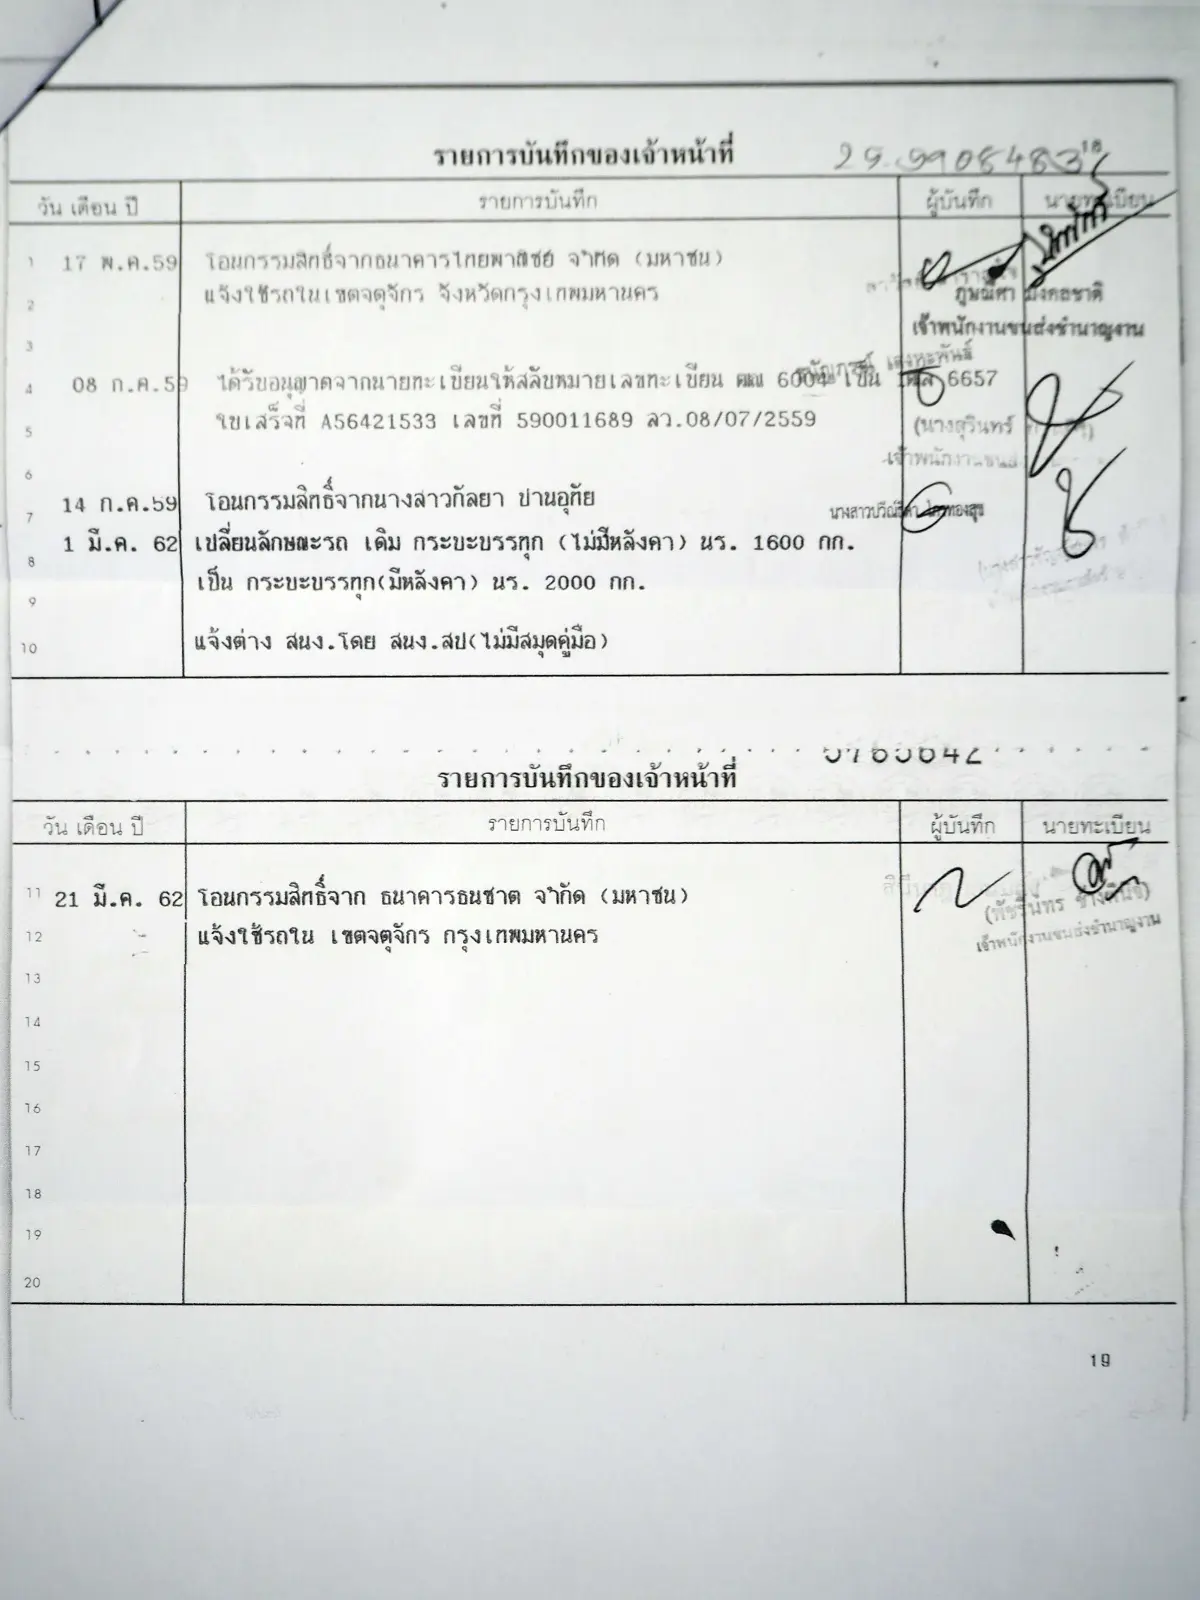 รายการบันทึกของเจ้าหน้าที่
18
วัน เดือน ปี รายการบันทึก ผู้บันทึก นายทะเบียน
1 17 พ.ค.59 โอนกรรมสิทธิ์จากธนาคารไทยพาณิชย์ จำกัด (มหาชน)
2 แจ้งใช้รถในเขตจตุจักร จังหวัดกรุงเทพมหานคร
มงคลชาติ
เจ้าพนักงานขนส่งชำนาญงาน
3
4 08 ก.ค.59 ได้รับอนุญาตจากนายทะเบียนให้สลับหมายเลขทะเบียน 6004 เป็น 6657
5 ใบเสร็จที่ A56421533 เลขที่ 590011689 ลว.08/07/2559
(นางสุรินทร์
เจ้าพนักงานขนส่ง
6
7 14 ก.ค.59 โอนกรรมสิทธิ์จากนางสาวกัลยา บ้านอุทัย
8 1 มี.ค. 62 เปลี่ยนลักษณะรถ เดิม กระบะบรรทุก (ไม่มีหลังคา) นร. 1600 กก.
9 เป็น กระบะบรรทุก(มีหลังคา) นร. 2000 กก.
10 แจ้งต่าง สนง.โดย สนง.สป(ไม่มีสมุดคู่มือ)
5765642
รายการบันทึกของเจ้าหน้าที่
วัน เดือน ปี รายการบันทึก ผู้บันทึก นายทะเบียน
11 21 มี.ค. 62 โอนกรรมสิทธิ์จาก ธนาคารธนชาต จำกัด (มหาชน)
12 แจ้งใช้รถใน เขตจตุจักร กรุงเทพมหานคร
เจ้าพนักงานขนส่งชำนาญงาน
13
14
15
16
17
18
19
20
19